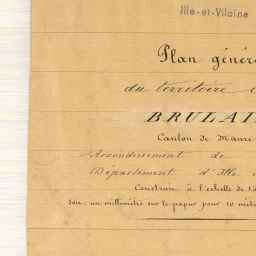 Ille-et-Vilaine
Plan géné
du territoire
BRULAI
Canton de Maure
Arrondissement de
Département d'Ille
Construit à l'échelle de
un millimètre sur le papier pour 10 mèt